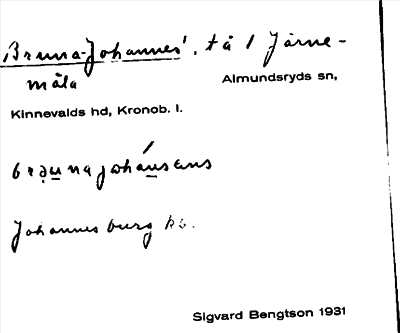 Bruna-Johannes', tå / Järne-
måla Almundsryds sn,
Kinnevalds hd, Kronob. l.
Johannesburg ks.
Sigvard Bengtson 1931